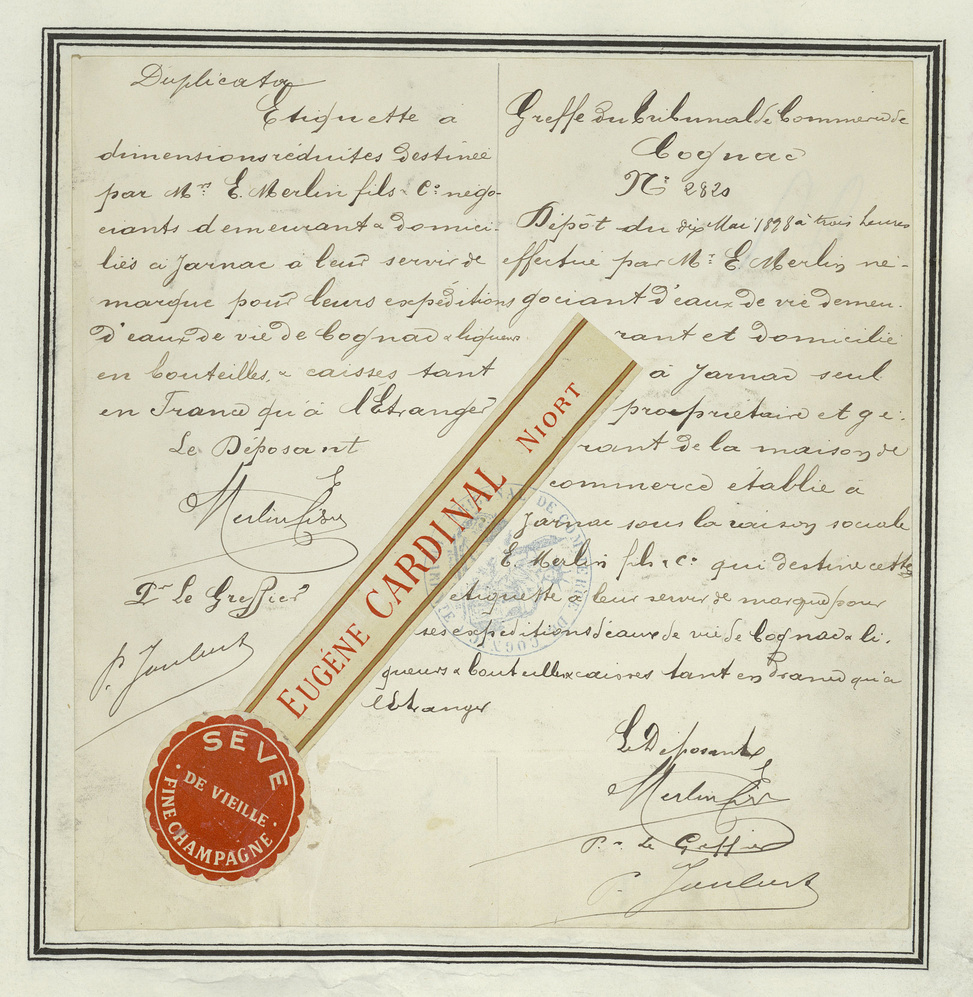 Duplicata
Etiquette à
dimensions réduites destinée
par Mrs E. Merlin fils & Co négo-
ciants demeurant & domici-
liés à Jarnac à leur servir de
marque pour leurs expéditions
d'eaux de vie de Cognac & liqueurs
en bouteilles & caisses tant
en France qu'à l'Etranger
Le Déposant
E Merlin fils
Pr Le Greffier
P. Joubert
Greffe du Tribunal de Commerce de
Cognac
No 2820
Dépôt du dix Mai 1898 à trois heures
effectué par Mr E. Merlin né-
gociant d'eaux de vie demeu-
rant et domicilié
à Jarnac seul
propriétaire et gé-
rant de la maison de
commerce établie à
Jarnac sous la raison sociale
E. Merlin fils & Co qui destine cette
étiquette à leur servir de marque pour
ses expéditions d'eaux de vie de Cognac & li-
queurs & bouteilles & caisses tant en France qu'à
l'Etranger
Le Déposant
E Merlin fils
Pr Le Greffier
P. Joubert
EUGÉNE CARDINAL NIORT
SÈVE
DE VIEILLE
FINE CHAMPAGNE
TRIBUNAL DE COMMERCE DE COGNAC